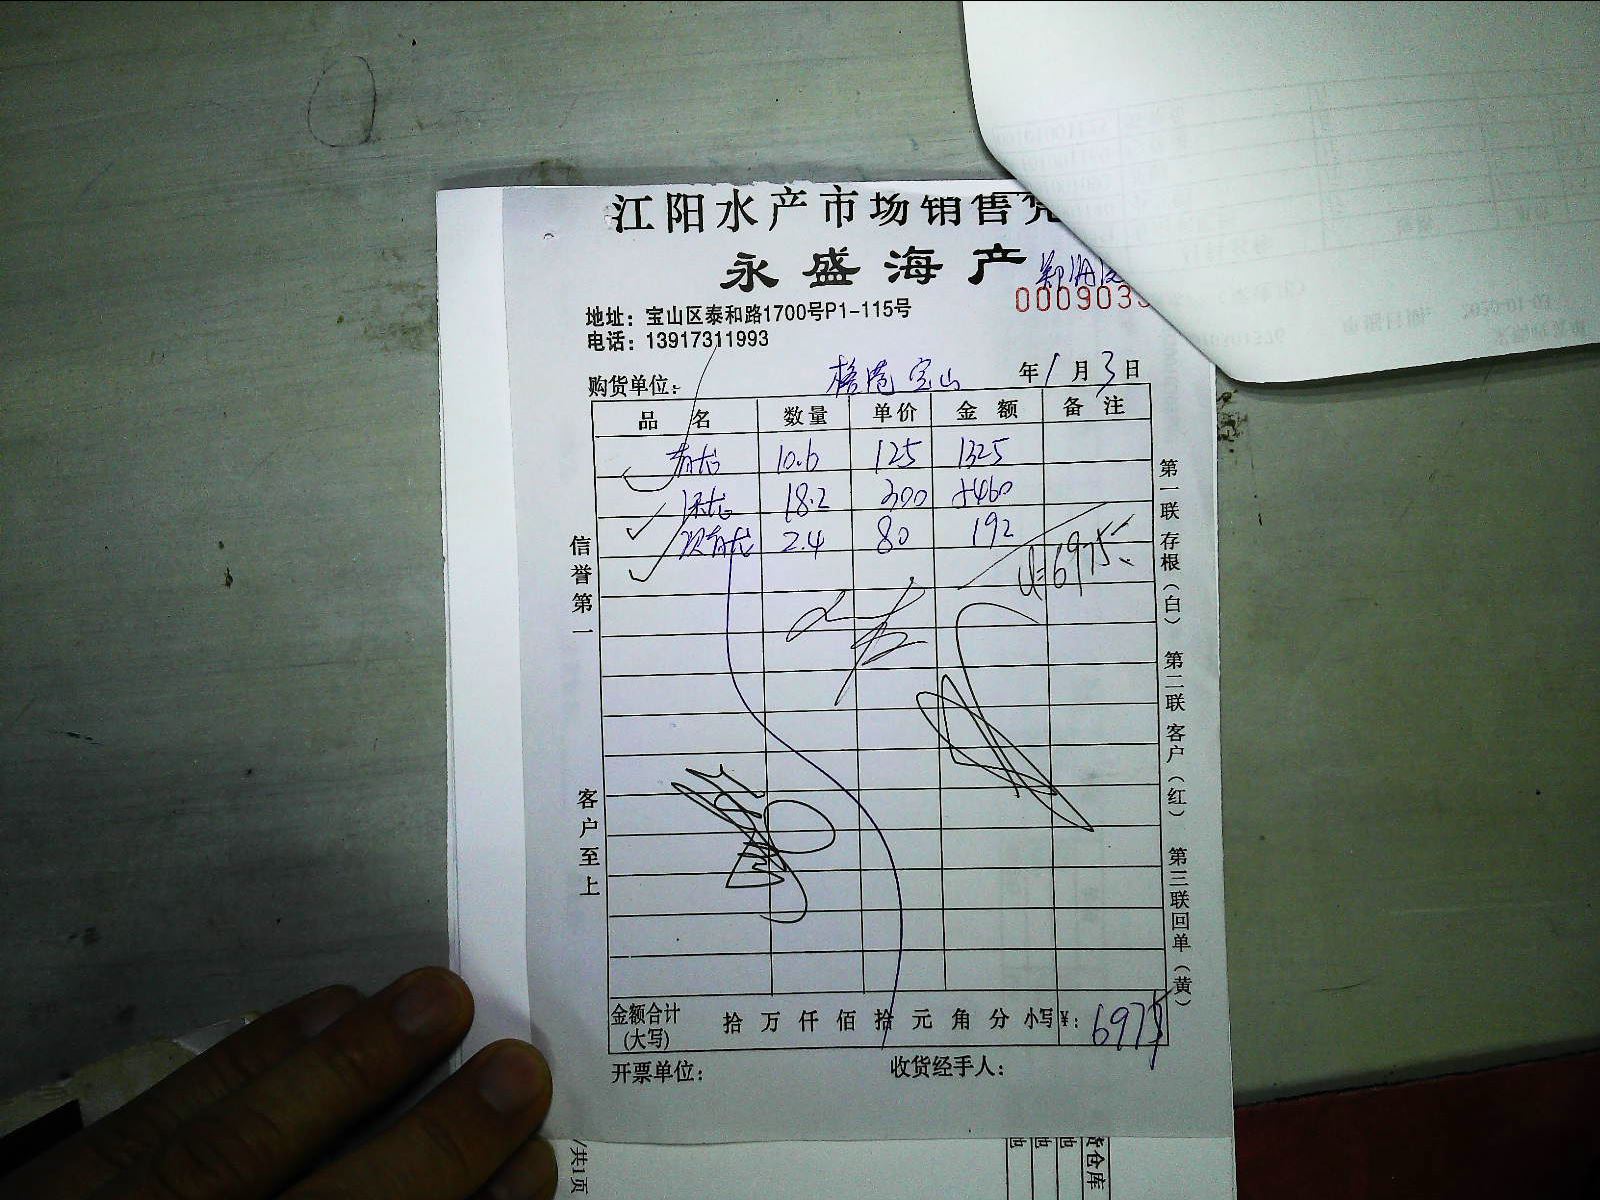 江阳水产市场销售凭
永盛海产
0009033
地址：宝山区泰和路1700号P1-115号
电话：13917311993
购货单位： 宝山 年1月3日
品名 数量 单价 金额 备注
青龙 10.6 125 1325
18.2 300 5460
次青龙 2.4 80 192
6975
信誉第一
客户至上
第一联 存根（白） 第二联 客户（红） 第三联 回单（黄）
金额合计(大写) 拾万仟佰拾元角分 小写¥：6975
开票单位： 收货经手人：
货仓库
/共1页